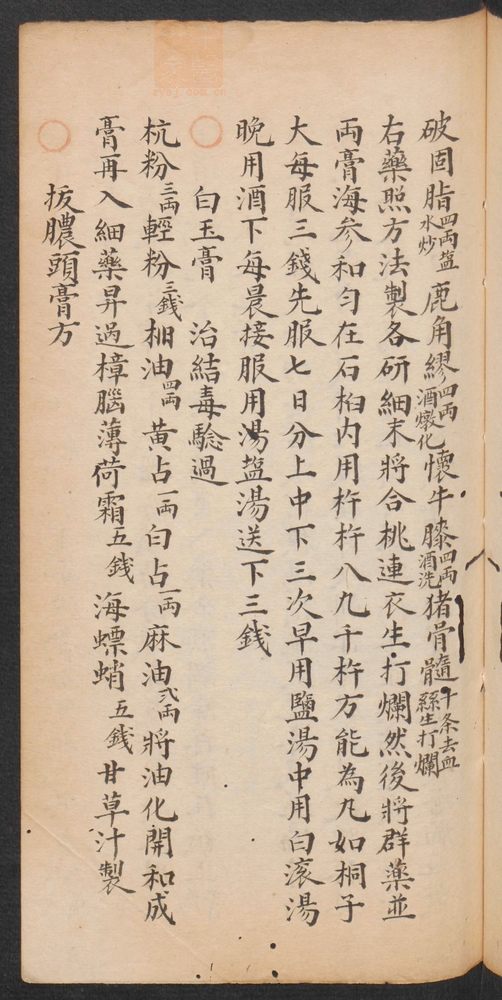 破固脂四両塩水炒鹿角繆四両酒燉化懷牛膝四両酒洗猪骨髓十条去血絲生打爛
右藥照方法製各研細末將合桃連衣生打爛然後將群藥並
両膏海参和匀在石柏内用杵杵八九千杵方能為凡如桐子
大每服三錢先服七日分上中下三次早用鹽湯中用白滚湯
晚用酒下每晨接服用湯塩湯送下三錢
白玉膏 治結毒驗過
杭粉三両輕粉三錢桕油四両黄占一両白占一両麻油弍両將油化開和成
膏再入細藥昇過樟腦薄荷霜五錢海螵蛸五錢甘草汁製
拔膿頭膏方